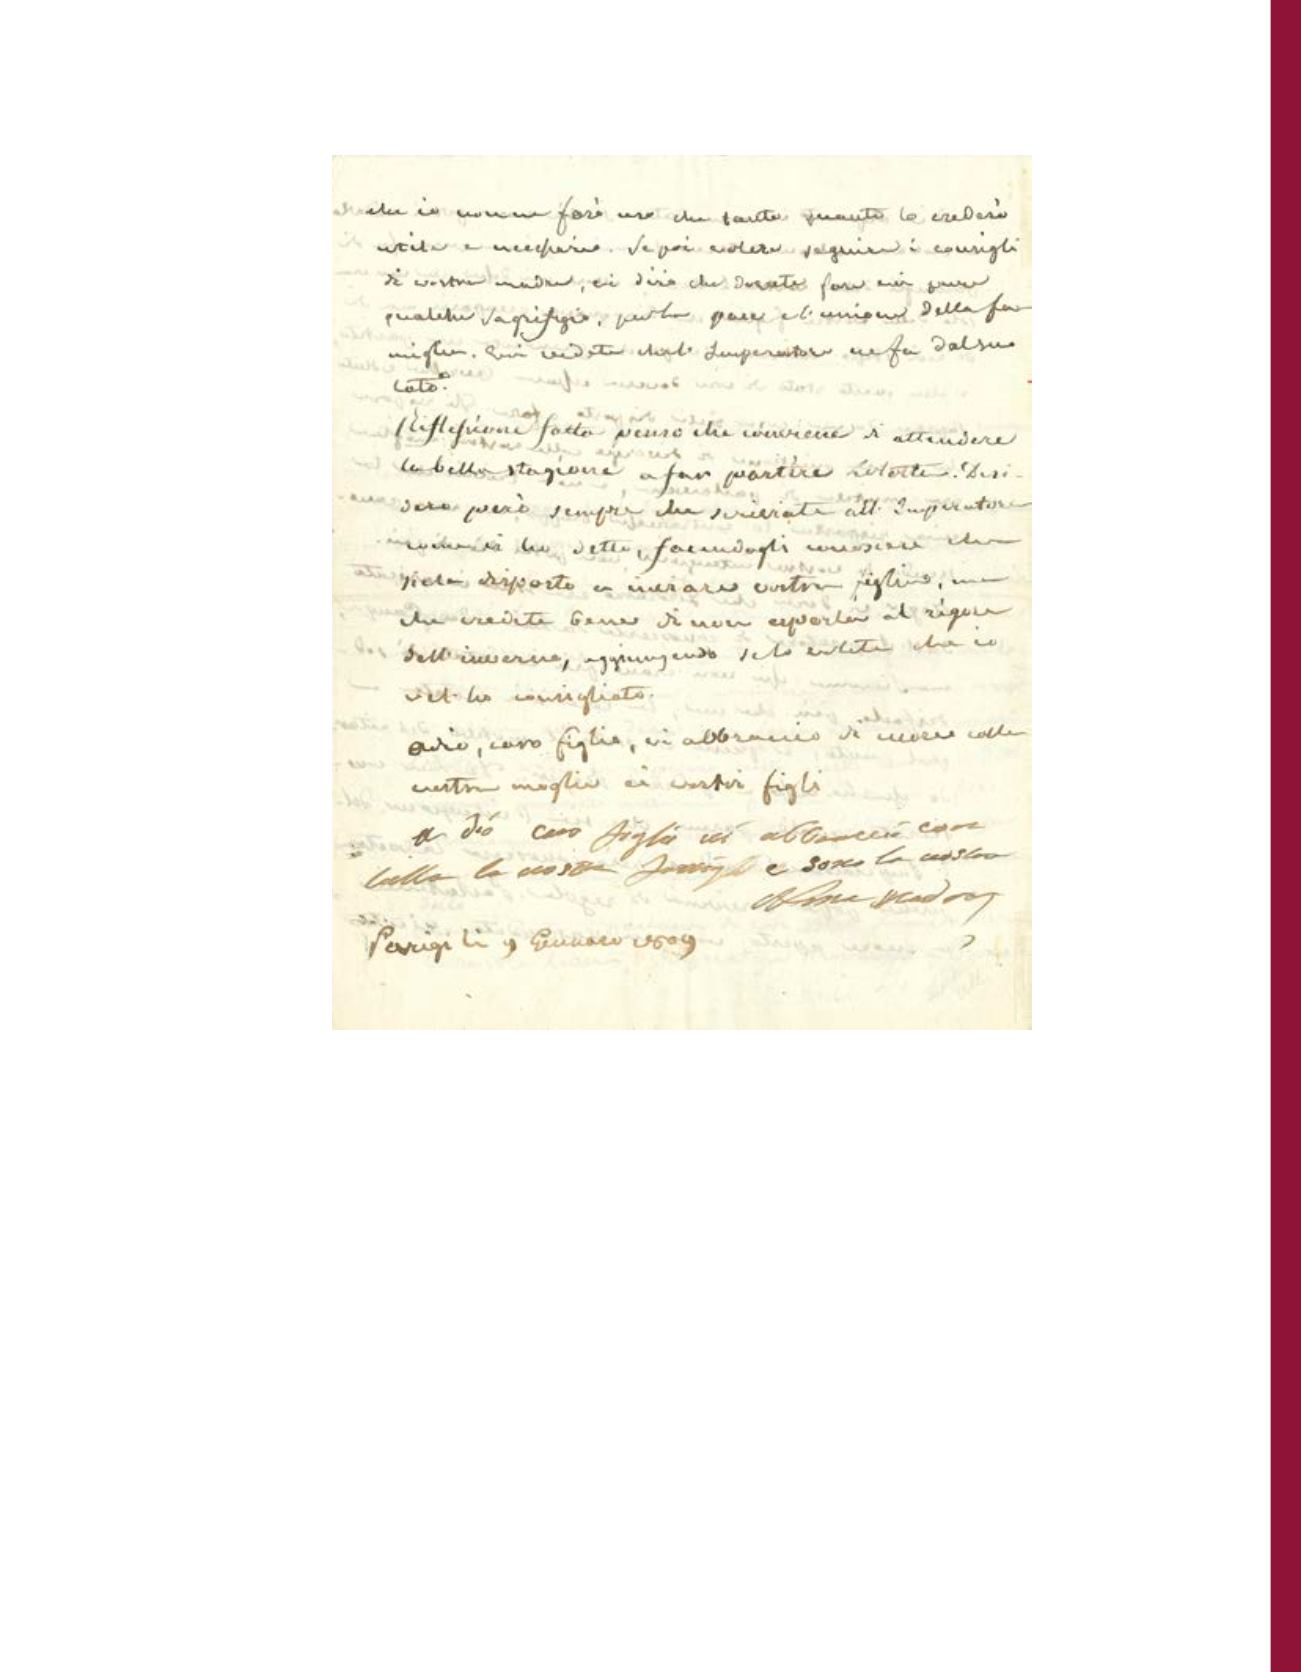 che io non ne farò uso che tanto quanto lo crederò
utile e necessario. Se poi volete seguire i consigli
di vostra madre, vi dirò che dovete fare voi pure
qualche sagrifizio, per la pace e l'unione della fa-
miglia. Voi vedete che l'Imperatore ne fa dal suo
lato.
Riflessione fatta penso che conviene di attendere
la bella stagione a far partire Lolotte. Desi-
dero però sempre che scriviate all'Imperatore
come vi ho detto, facendogli conoscere che
siete disposto a inviare vostra figlia, ma
che credete bene di non esporla al rigore
dell'inverno, aggiungendo se lo volete che io
ve l'ho consigliato.
Adio, caro figlio, vi abbraccio di cuore colla
vostra moglie ei vostri figli
a dio caro figlio vi abbraccio con
tutta la vostra e sono la vostra
Madre
Parigi li 9 Gennaro 1809